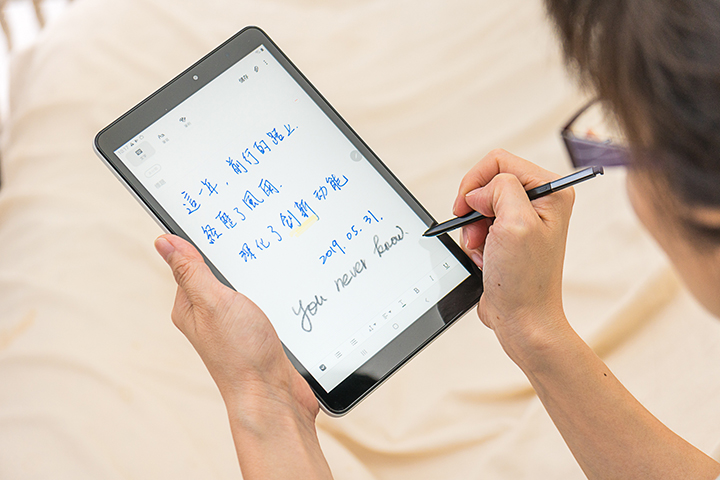 這一年，前行的路上.
經歷了風雨.
強化了創新动能
2019.05.31.
You never know.